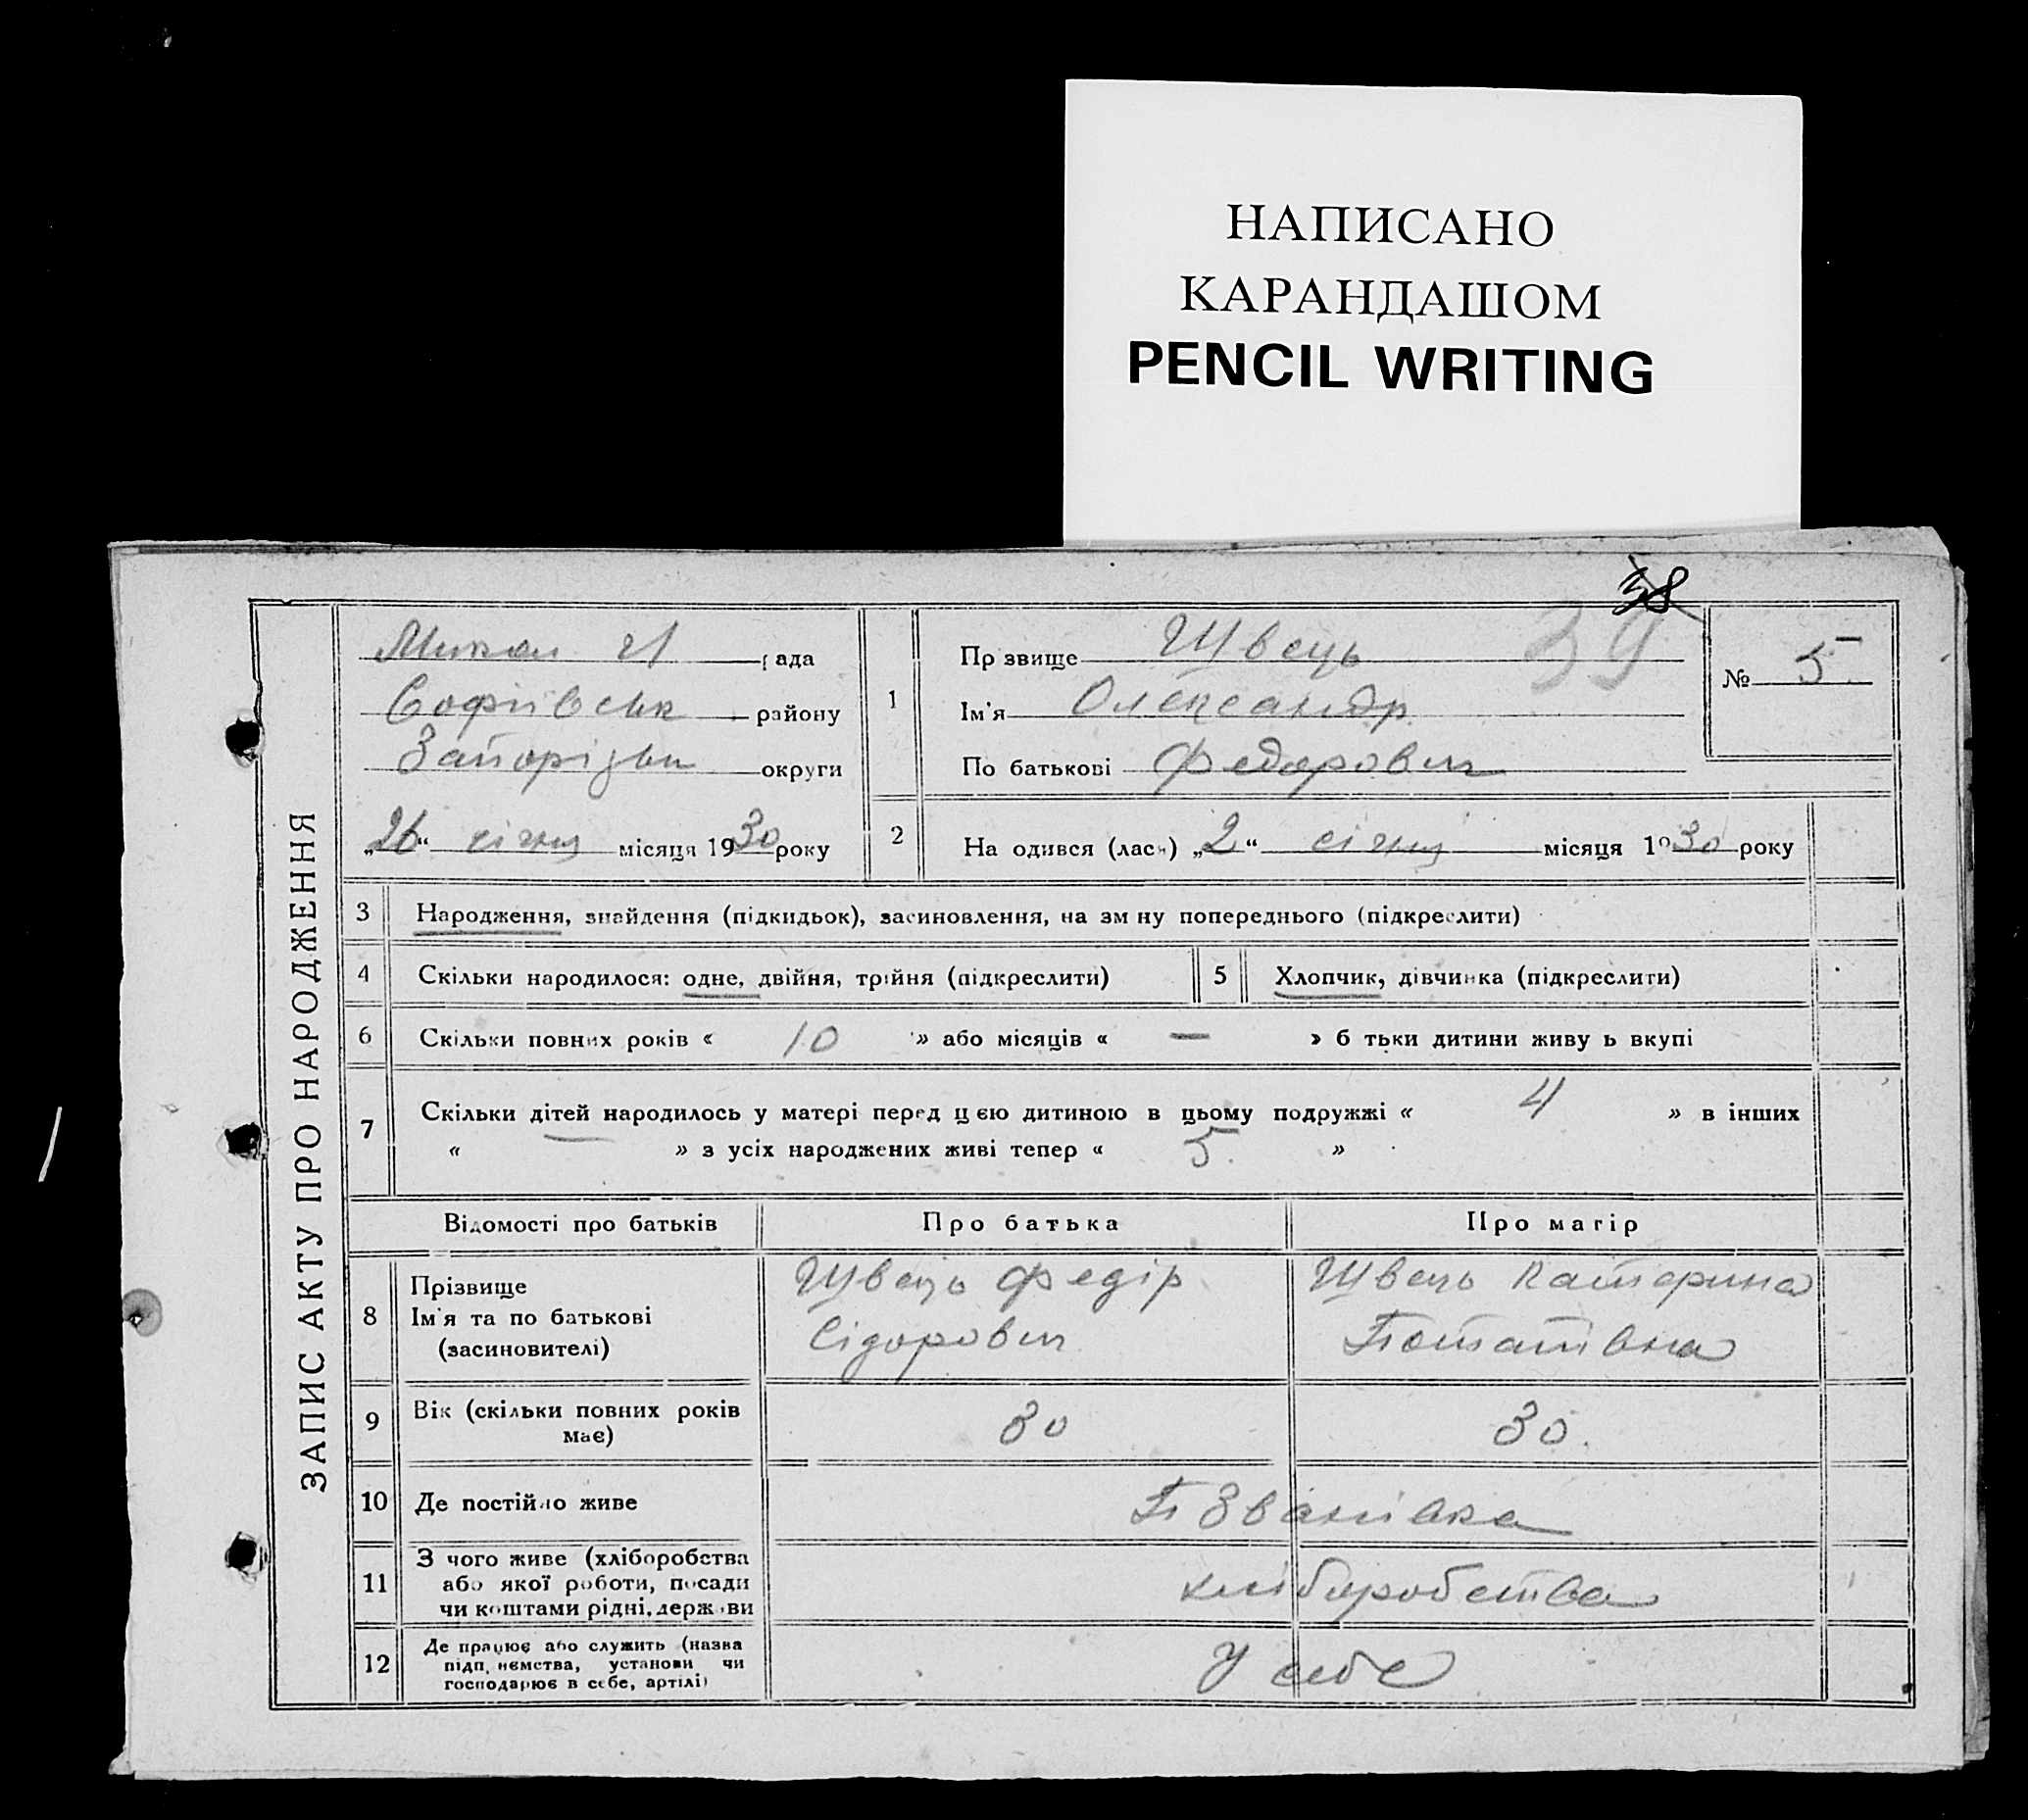 НАПИСАНО
КАРАНДАШОМ
PENCIL WRITING
38
39
ЗАПИС АКТУ ПРО НАРОДЖЕННЯ
Микол рада
Софіївськ району
Запорізьк округи
„26“ січня місяця 1930 року
1
Прізвище Швець
Ім'я Олександр
По батькові Федорович
№ 5.
2 На одився (лась) „2“ січня місяця 1930 року
3 Народження, знайдення (підкидьок), засиновлення, на зм ну попереднього (підкреслити)
4 Скільки народилося: одне, двійня, трійня (підкреслити)
5 Хлопчик, дівчинка (підкреслити)
6 Скільки повних років « 10 » або місяців « — » б тьки дитини живу ь вкупі
7 Скільки дітей народилось у матері перед цією дитиною в цьому подружжі « 4 » в інших
« — » з усіх народжених живі тепер « 5. »
Відомості про батьків Про батька Про матір
8 Прізвище
Ім'я та по батькові
(засиновителі)
Швець Федір
Сідорович
Швець Катерина
Потапівна
9 Вік (скільки повних років
має)
30 30.
10 Де постійно живе
П Званівка
11 З чого живе (хліборобства
або якої роботи, посади
чи коштами рідні, держави
хліборобства
12 Де працює або служить (назва
підп. немства, установи чи
господарює в себе, артілі)
У себе